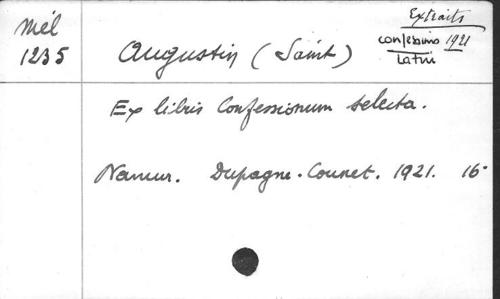 Mél
1235
Extraits
confessions 1921
Latin
Augustin (Saint)
Ex libris Confessionum selecta.
Namur. Dupagne-Counet. 1921. 16°